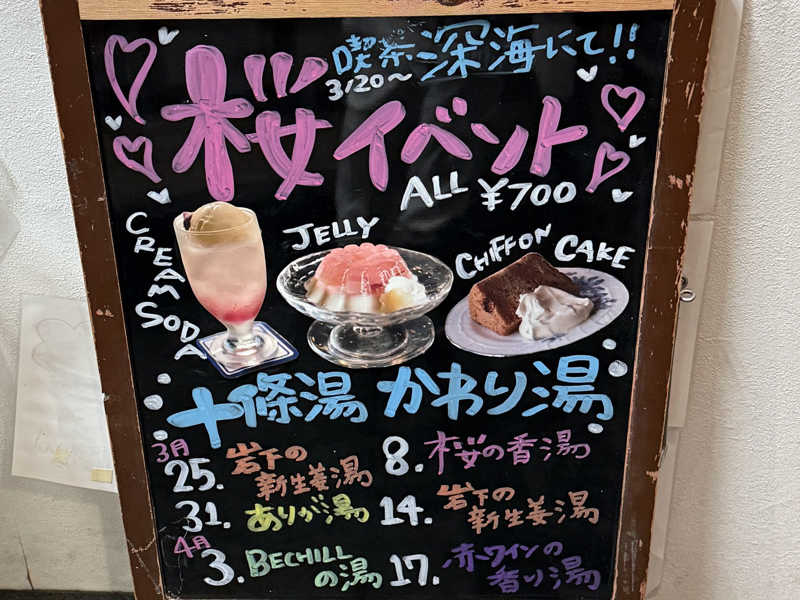 喫茶深海にて!!
3/20〜
桜イベント
ALL ¥700
CREAM SODA
JELLY
CHIFFON CAKE
十條湯 かわり湯
3月
25. 岩下の新生姜湯
31. ありが湯
4月
3. BECHILLの湯
8. 桜の香湯
14. 岩下の新生姜湯
17. 赤ワインの香り湯